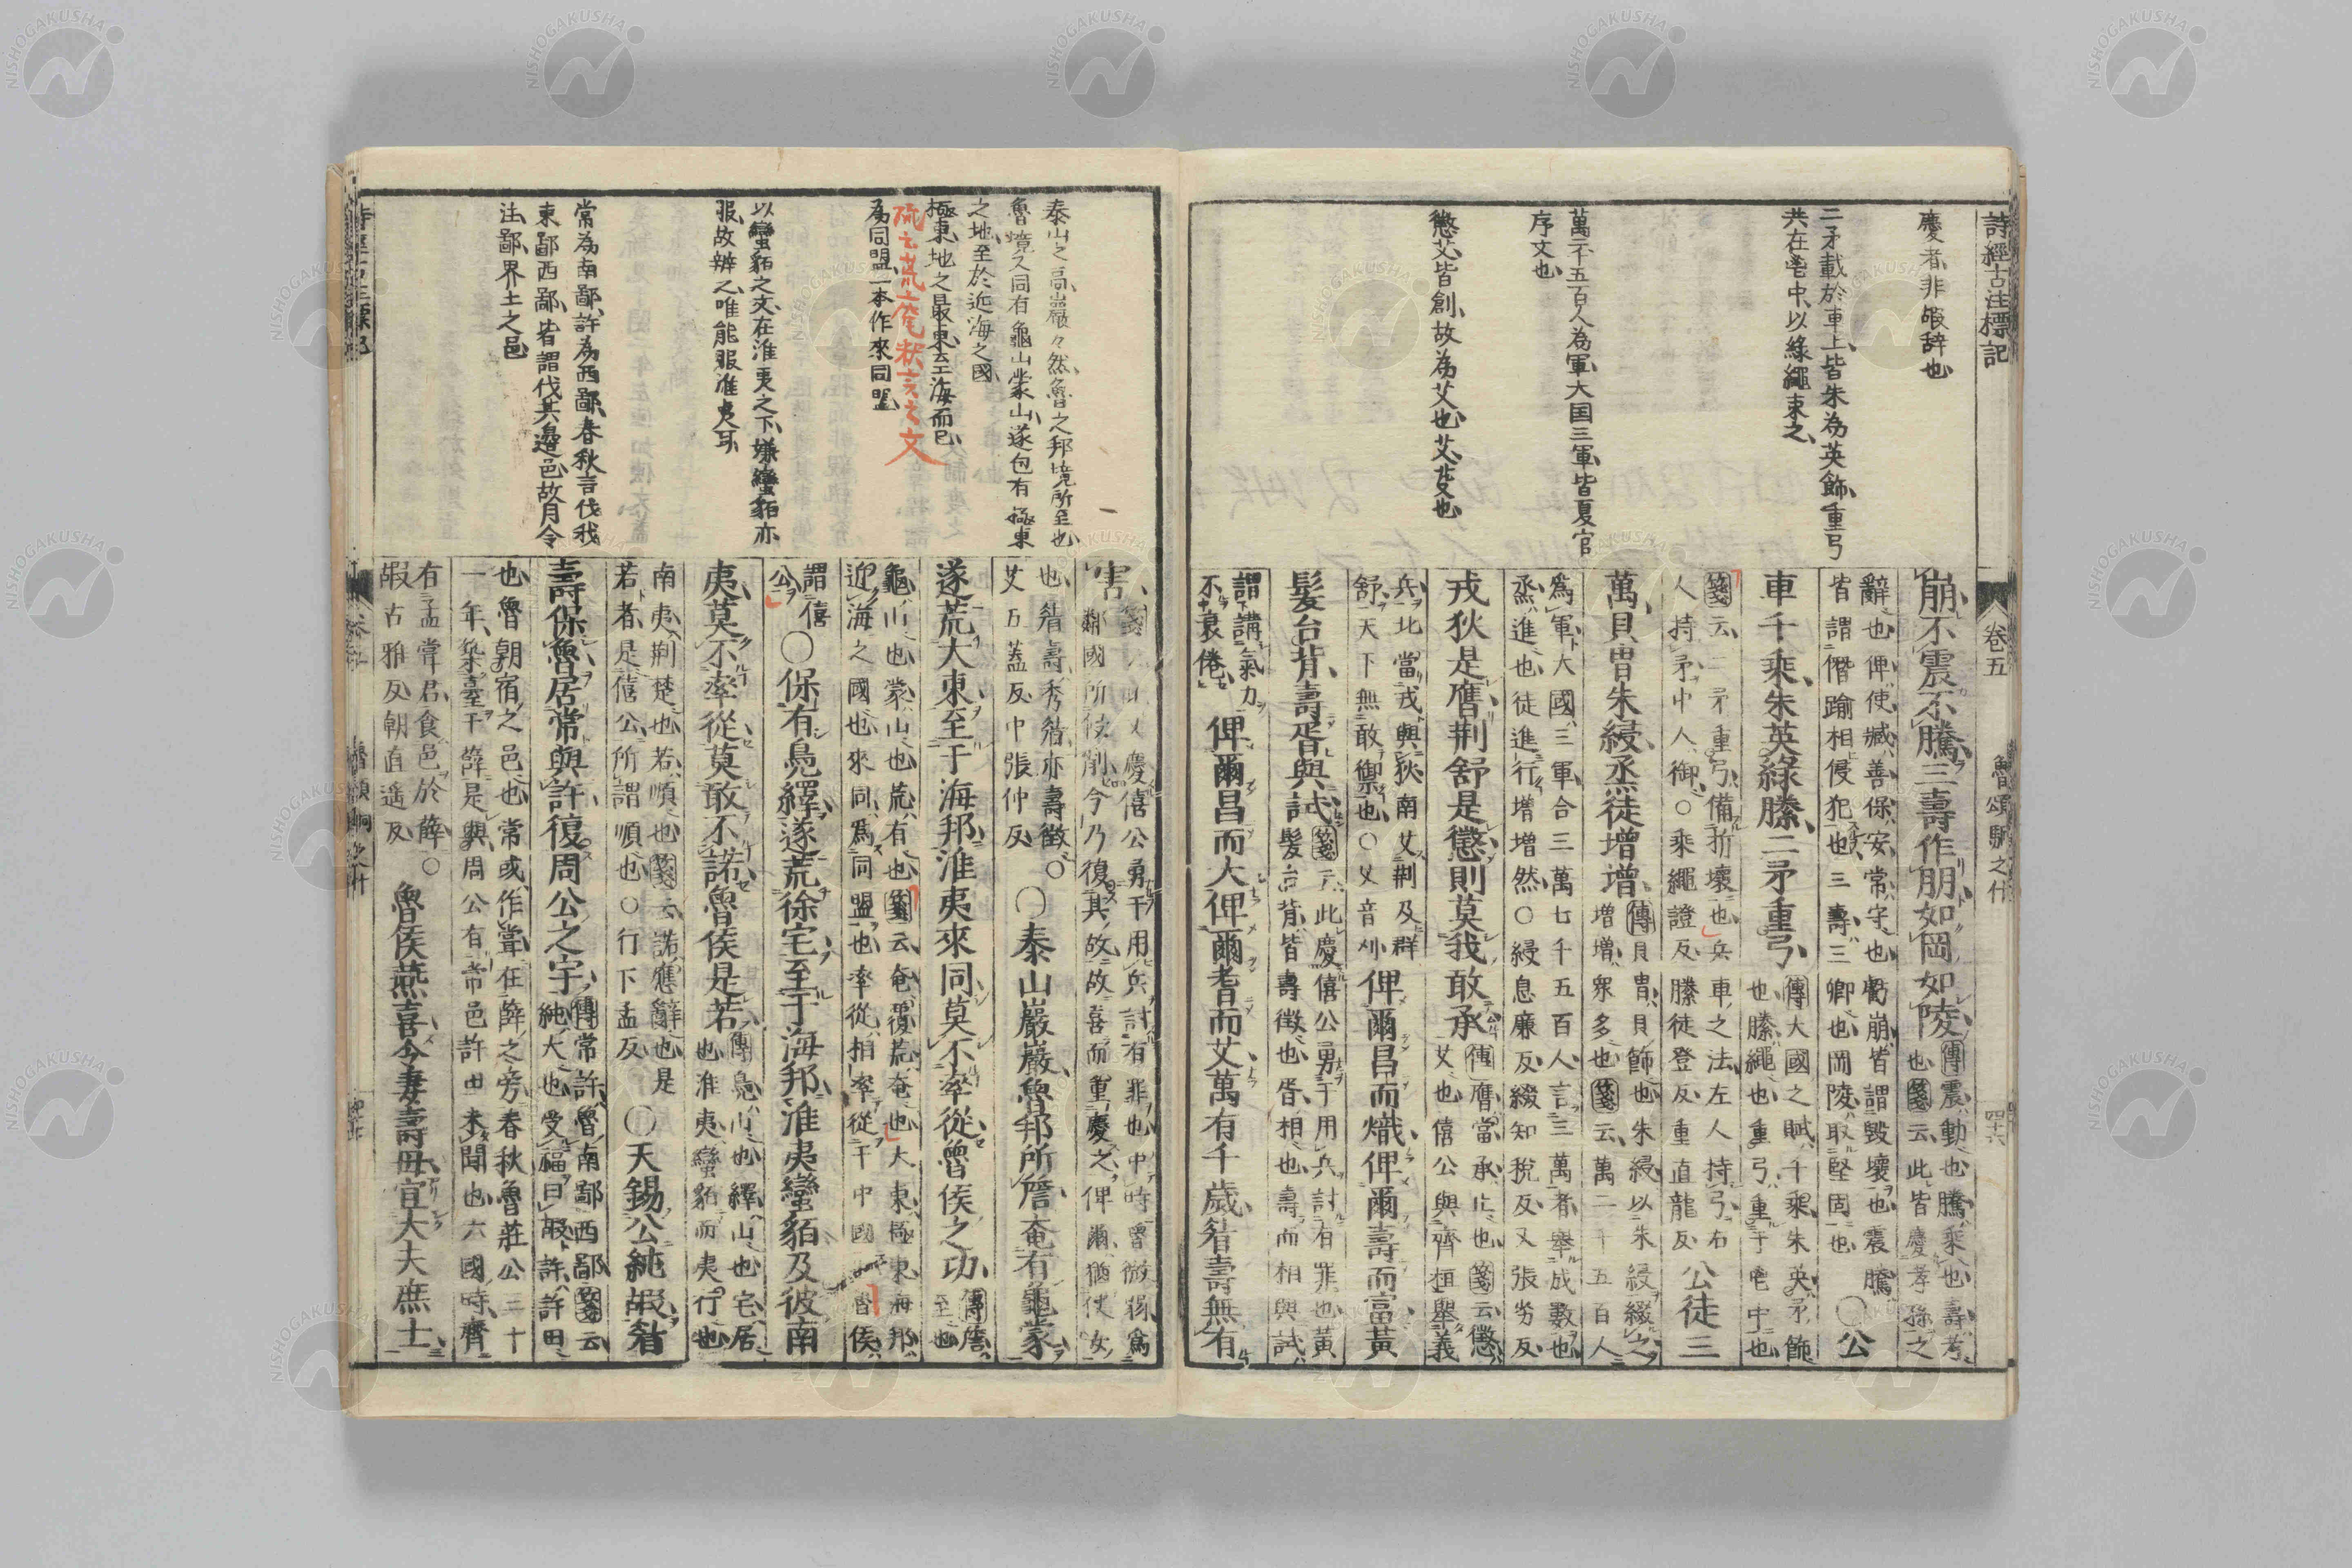 詩經古注標記
卷五
魯頌駉之什
四十六
慶者非嘏辞也
二矛載於車上皆朱為英飾重弓
共在鬯中以綠繩束之
萬二千五百人為軍大国三軍皆夏官
序文也
懲艾皆創故為艾也艾芟也
崩不震不騰三壽作朋如岡如陵
傳震動也騰乘也壽考
也箋云此皆慶孝孫之
辭也俾使臧善保安常守也虧崩皆謂毀壞也震騰
皆謂僭踰相侵犯也三壽三卿也岡陵取堅固也
〇公
車千乘朱英綠縢二矛重弓
傳大國之賦千乘朱英矛飾
也縢繩也重弓重于鬯中也
箋云二矛重弓備折壞也兵車之法左人持弓右
人持矛中人御〇乘繩證反縢徒登反重直龍反
公徒三
萬貝冑朱綅烝徒增增
傳貝冑貝飾也朱綅以朱綅綴之
增增眾多也箋云萬二千五百人
爲軍大國三軍合三萬七千五百人言三萬者舉成數也
烝進也徒進行增增然〇綅息廉反綴知稅反又張劣反
戎狄是膺荆舒是懲則莫我敢承
傳膺當承止也箋云懲
艾也僖公與齊桓舉義
兵北當戎與狄南艾荆及群
舒天下無敢御也〇乂音刈
俾爾昌而熾俾爾壽而富黃
髮台背壽胥與試
箋云此慶僖公勇于用兵討有罪也黃
髮台背皆壽徵也胥相也壽而相與試
謂講氣力
不衰倦
俾爾昌而大俾爾耆而艾萬有千歲眉壽無有
泰山之高巖々然魯之邦境所至也
魯境又同有龜山蒙山遂包有極東
之地至於近海之國
極東地之最東至海而已
疏云荒奄釈言之文
為同盟一本作來同盟
以蠻貊之文在淮夷之下嫌蠻貊亦
服故辨之唯能服淮夷耳
常為南鄙許為西鄙春秋言伐我
東鄙西鄙皆謂伐其邊邑故月令
注鄙界土之邑
害
慶僖公勇于用兵討有罪也中時魯微弱爲
鄰國所侵削今乃復其故故喜而重慶之俾爾猶使女
也眉壽秀眉亦壽徵〇
艾五蓋反中張仲反
〇泰山巖巖魯邦所詹奄有龜蒙
遂荒大東至于海邦淮夷來同莫不率從魯侯之功
傳詹
至也
龜山也蒙山也荒有也箋云奄覆荒奄也大東極東海邦
近海之國也來同爲同盟也率從相率從于中國魯侯
謂僖
公
〇保有鳧繹遂荒徐宅至于海邦淮夷蠻貊及彼南
夷莫不率從莫敢不諾魯侯是若
傳鳧山也繹山也宅居
也淮夷蠻貊而夷行也
南夷荆楚也若順也箋云諾應辭也是
若者是僖公所謂順也〇行下孟反
〇天錫公純嘏眉
壽保魯居常與許復周公之宇
傳常許魯南鄙西鄙箋云
純大也受福曰嘏許許田
也魯朝宿之邑也常或作嘗在薛之旁春秋魯莊公三十
一年築臺于薛是與周公有常邑許田未聞也六國時齊
有孟嘗君食邑於薛〇
嘏古雅反朝直遥反
魯侯燕喜令妻壽母宜大夫庶士